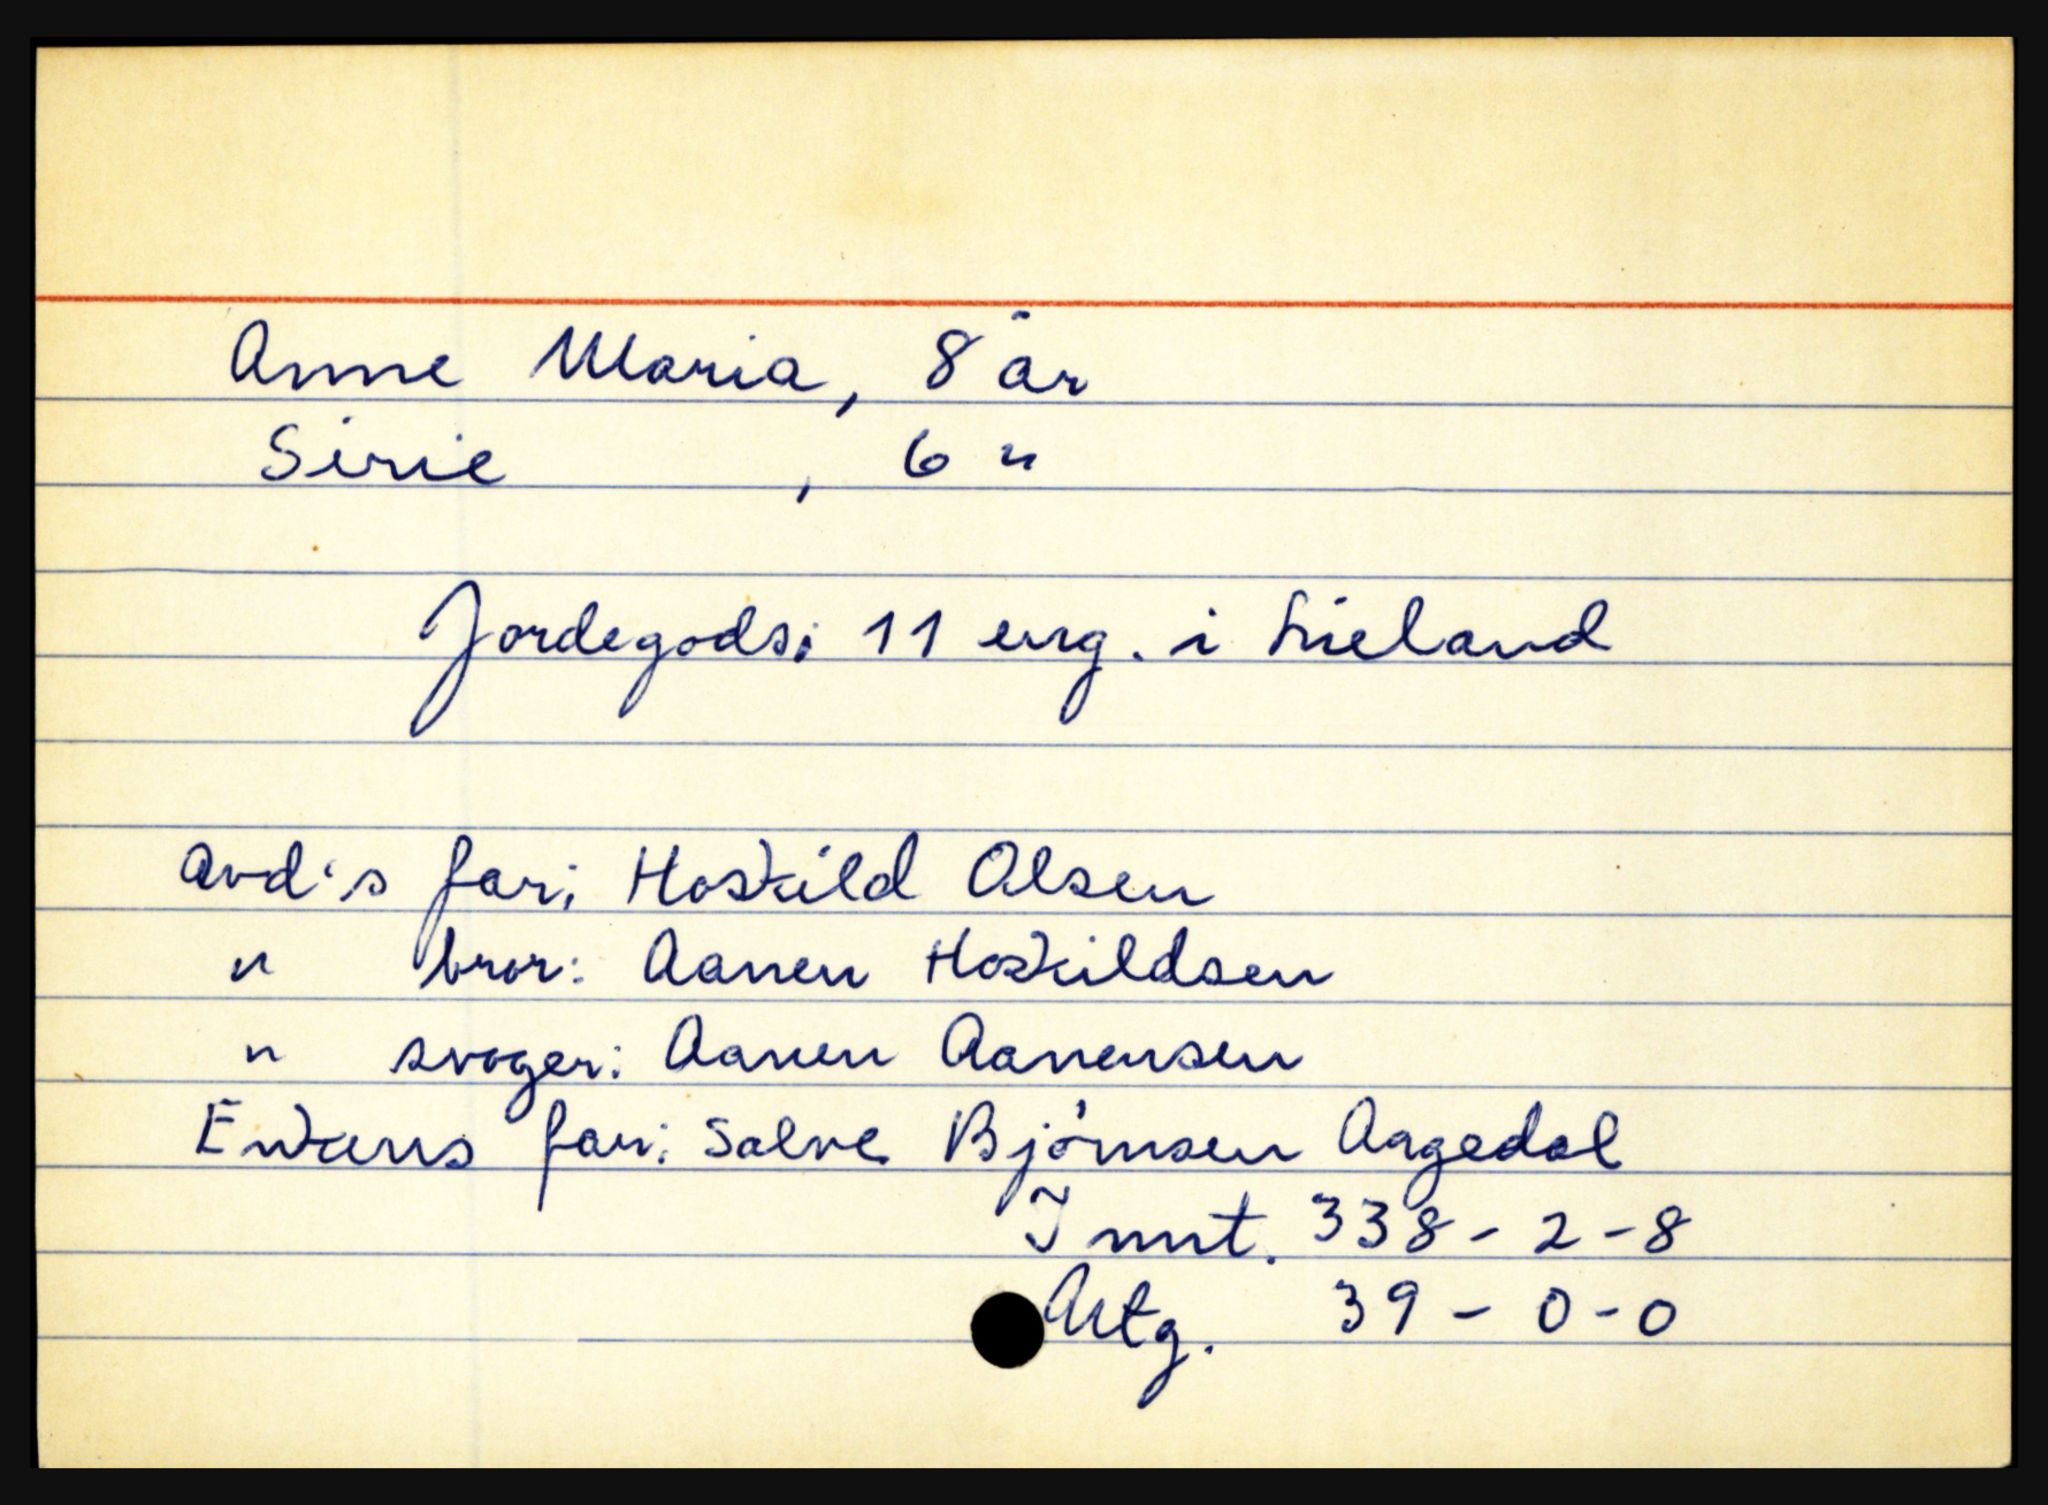 Anne Maria, 8 år
Sirie , 6 "
Jordegods: 11 eng. i Lieland
Avd's far: Hoskild Olsen
" bror: Aanen Hoskildsen
" svoger: Aanen Aanensen
Enkens far: Salve Bjørnsen Aagedal
Innt. 338 - 2 - 8
Utg. 39 - 0 - 0